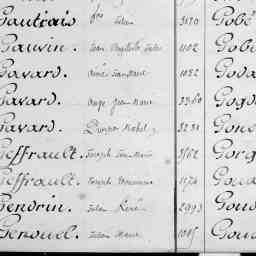 Gautrais Julien 3120 Gobé
Gauvin. Jean Baptiste Jules 1102 Gobi
Gavard. Aimé Constant 1082 Goda
Gavard. Ange Jean Marie 3360 Gogu
Gavard. Prosper Michel 3231 Gons
Geffrault. Joseph Jean Marie 3562 Gorg
Geffrault. Joseph 1174 Goua
Gendrin. Julien René 2993 Goud
Genouel. Julien Marie 1015 Goud